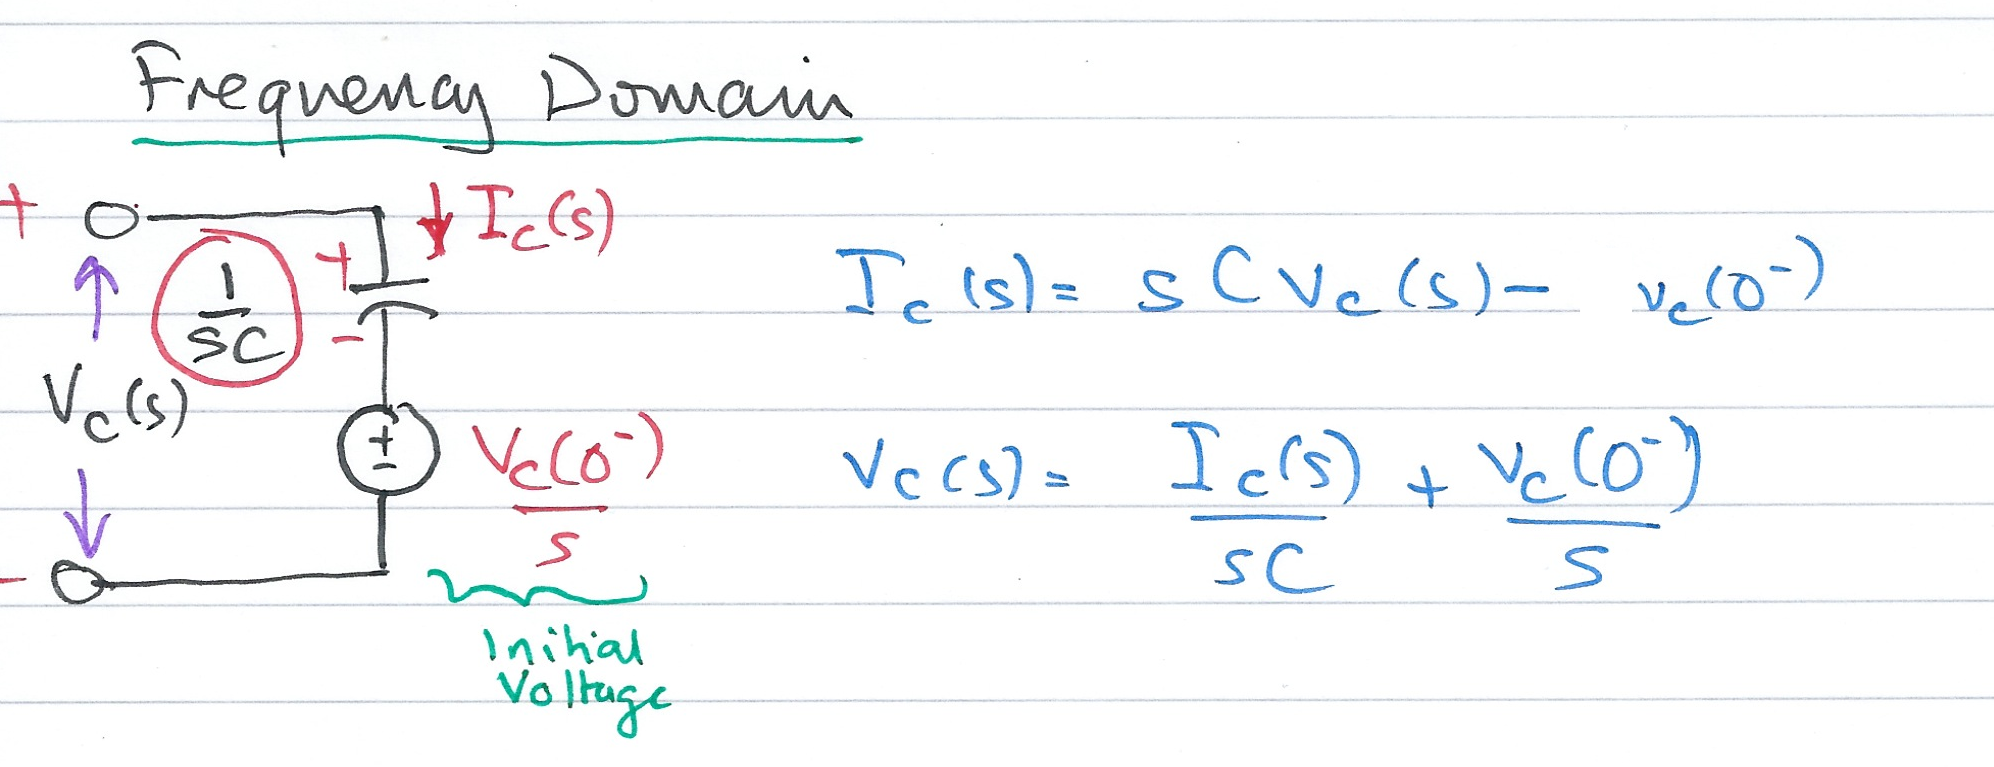 Frequency Domain
+
I_c(s)
+
1/sC
-
V_c(s)
+
-
V_c(0⁻)/s
-
Initial
Voltage
I_c(s) = sCV_c(s) - v_c(0⁻)
V_c(s) = I_c(s)/sC + v_c(0⁻)/s